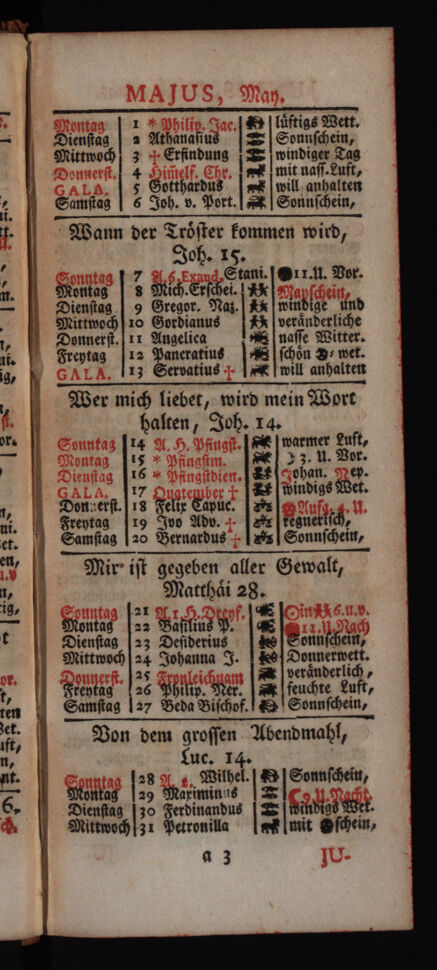 MAJUS, May.
Montag 1 * Philip. Jac. lüftigs Wett.
Dienstag 2 Athanasius Sonnschein,
Mittwoch 3 + Erfindung windiger Tag
Donnerst. 4 Him̃elf. Chr. mit nass. Luft,
GALA. 5 Gotthardus will anhalten
Samstag 6 Joh. v. Port. Sonnschein,
Wann der Tröster kommen wird,
Joh. 15.
Sonntag 7 A. 6. Exaud. Stani. 11. U. Vor.
Montag 8 Mich. Erschei. Mayschein,
Dienstag 9 Gregor. Naz. windige und
Mittwoch 10 Gordianus veränderliche
Donnerst. 11 Angelica nasse Witter.
Freytag 12 Pancratius schön wet.
GALA. 13 Servatius + will anhalten
Wer mich liebet, wird mein Wort
halten, Joh. 14.
Sonntag 14 A. H. Pfingst. warmer Luft,
Montag 15 * Pfingstm. 3. U. Vor.
Dienstag 16 * Pfingstdien. Johan. Nep.
GALA. 17 Quatember + windigs Wet.
Donnerst. 18 Felix Capuc. Aufg. 4. U.
Freytag 19 Ivo Adv. + regnerisch,
Samstag 20 Bernardus + Sonnschein,
Mir ist gegeben aller Gewalt,
Matthäi 28.
Sonntag 21 A. 1. H. Dreyf. in 6. u. v.
Montag 22 Basilius P. 11. U. Nach
Dienstag 23 Desiderius Sonnschein,
Mittwoch 24 Johanna J. Donnerwett.
Donnerst. 25 Fronleichnam veränderlich,
Freytag 26 Philip. Ner. feuchte Luft,
Samstag 27 Beda Bischof. Sonnschein,
Von dem grossen Abendmahl,
Luc. 14.
Sonntag 28 A. 2. Wilhel. Sonnschein,
Montag 29 Maximinus 9. U. Nacht.
Dienstag 30 Ferdinandus windigs Wet.
Mittwoch 31 Petronilla mit schein,
a 3 JU-